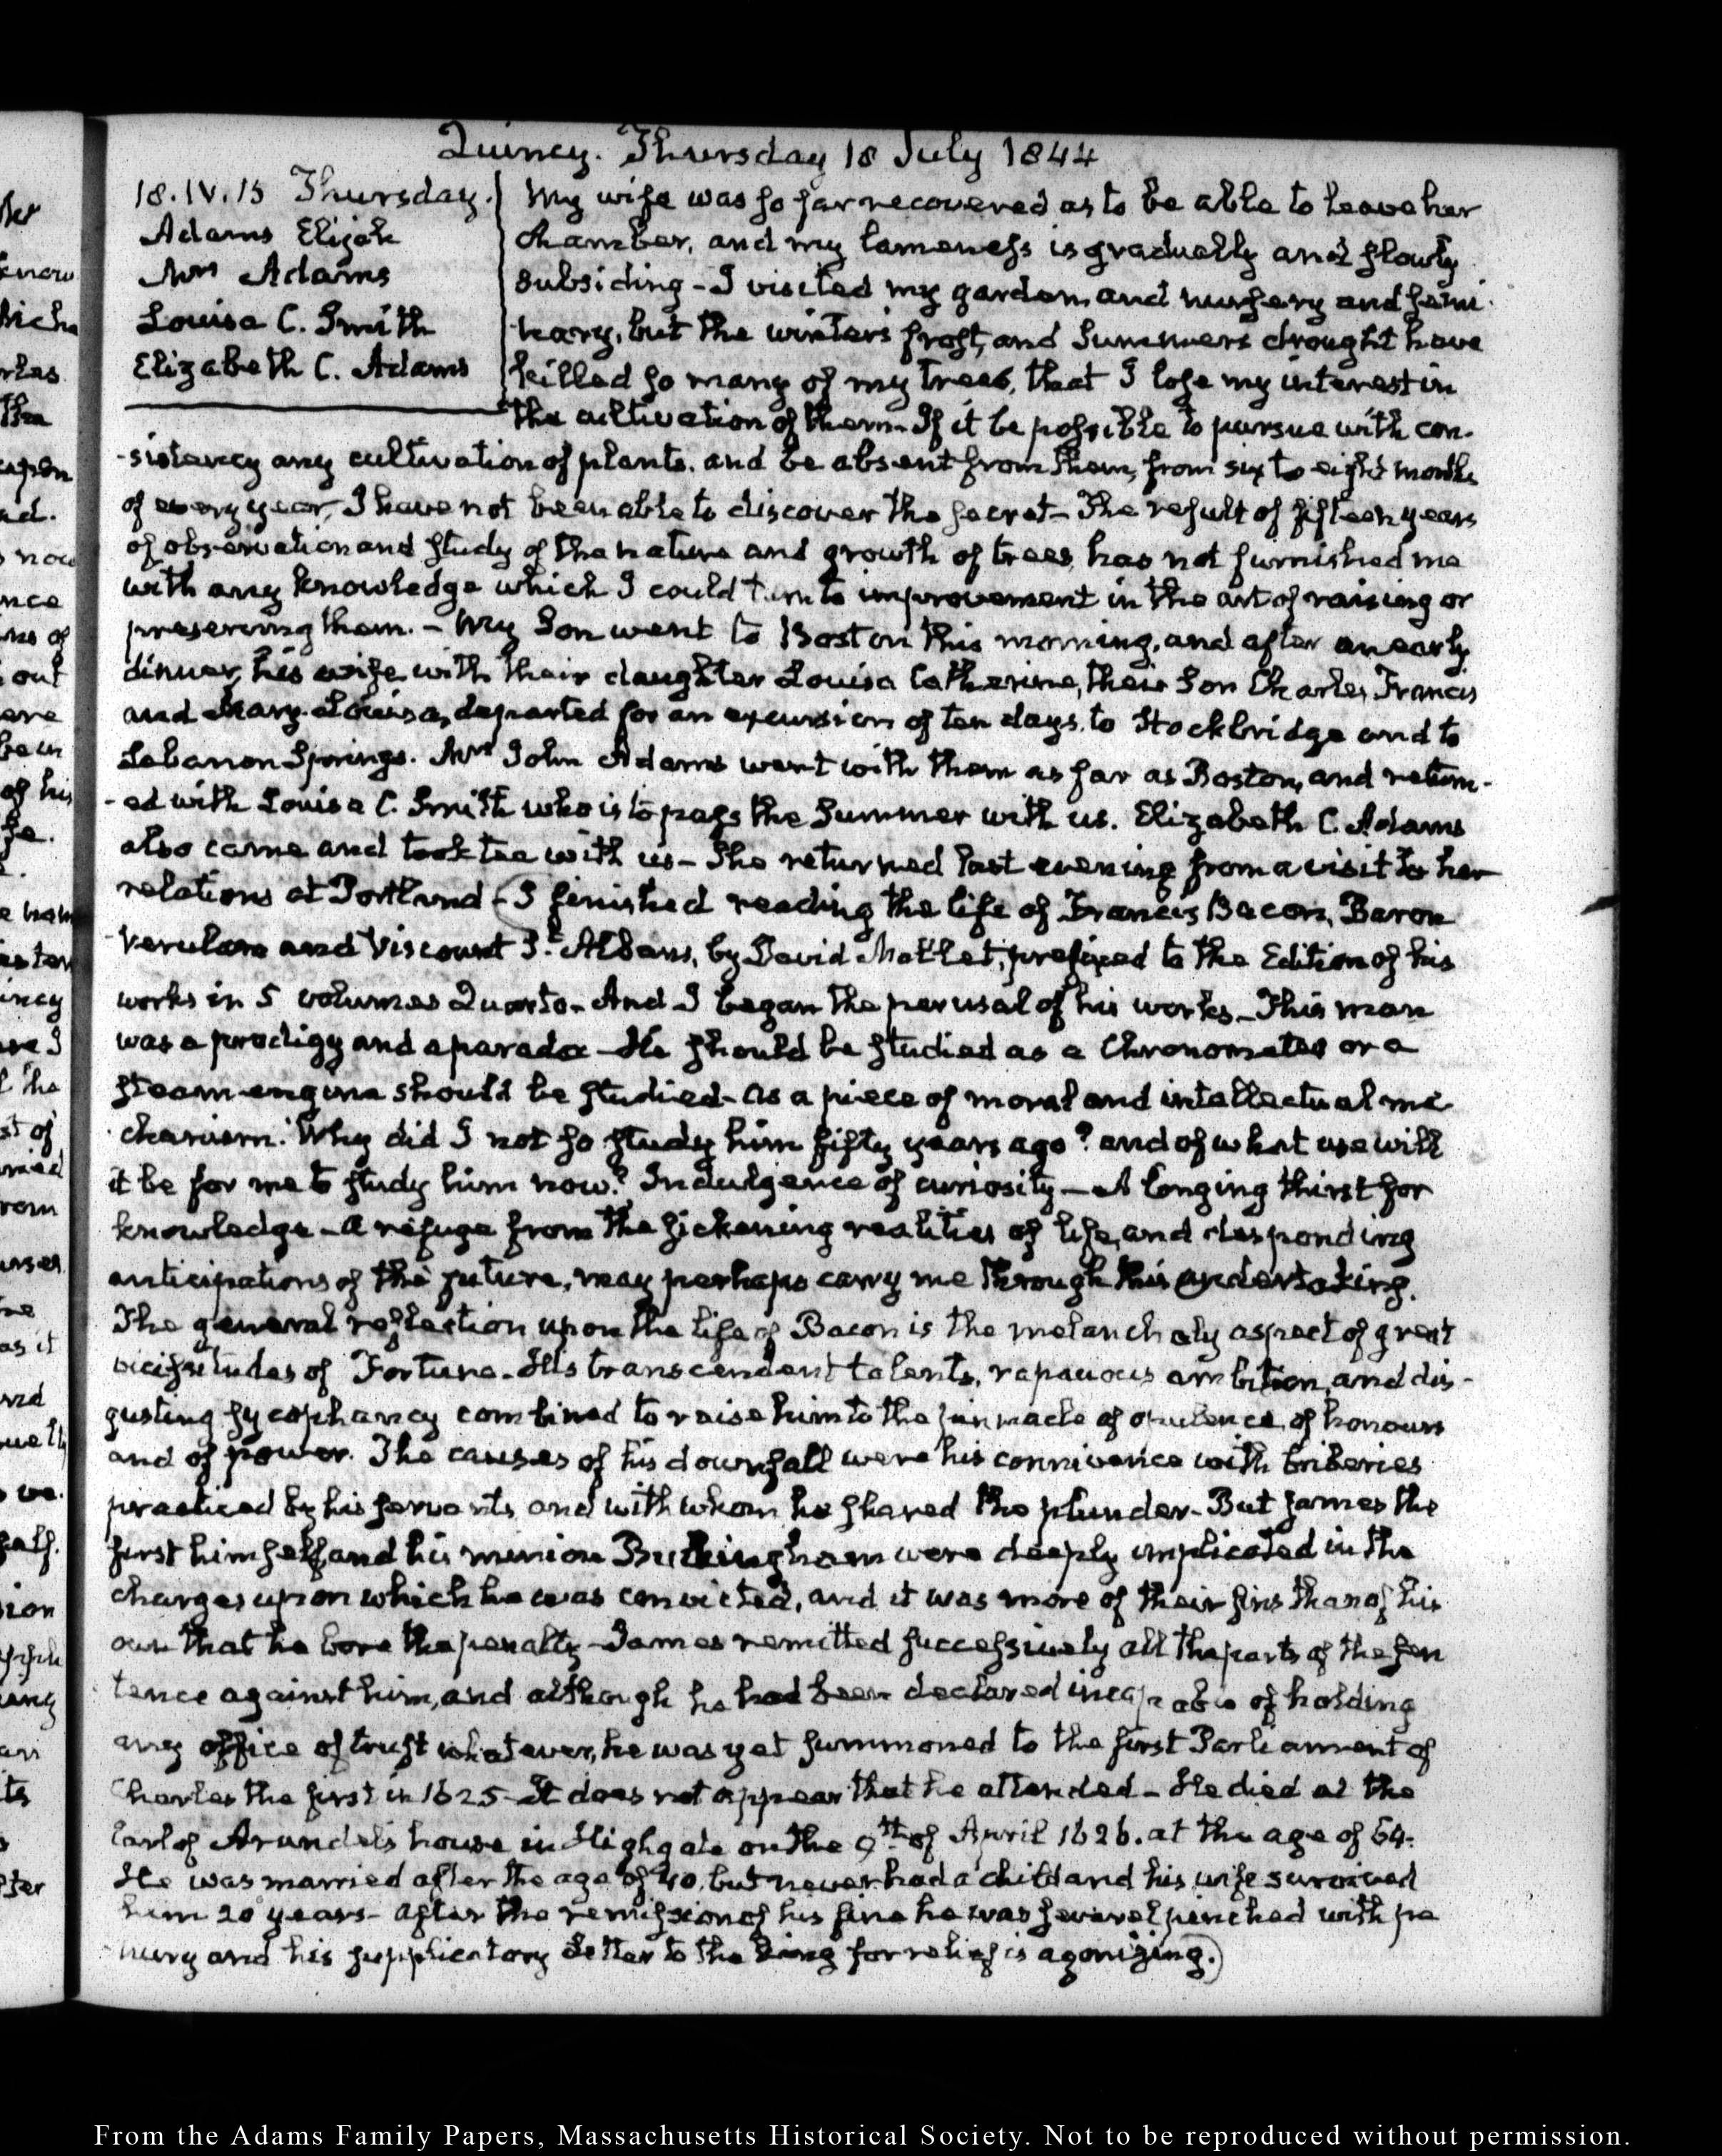 Quincy. Thursday 18 July 1844
18.IV.15 Thursday.
Adams Elijah
Mrs Adams
Louisa C. Smith
Elizabeth C. Adams
My wife was so far recovered as to be able to leave her
chamber, and my lameness is gradually and slowly
subsiding - I visited my garden, and nursery and semi-
nary, but the winter's frost, and Summer's drought have
killed so many of my trees, that I lose my interest in
the cultivation of them - If it be possible to pursue with con-
-sistency any cultivation of plants, and be absent from them, from six to eight months
of every year, I have not been able to discover the secret - The result of fifteen years
of observation and study of the nature and growth of trees, has not furnished me
with any knowledge which I could turn to improvement in the art of raising or
preserving them. - My Son went to Boston this morning, and after an early
dinner, his wife with their daughter Louisa Catherine, their Son Charles Francis
and Mary-Louisa, departed for an excursion of ten days, to Stockbridge and to
Lebanon Springs. Mrs John Adams went with them as far as Boston, and return-
-ed with Louisa C. Smith who is to pass the Summer with us. Elizabeth C. Adams
also came and took tea with us - She returned last evening from a visit to her
relations at Portland - (I finished reading the life of Francis Bacon, Baron
Verulam and Viscount St. Albans, by David Mallet, prefixed to the Edition of his
works in 5 volumes Quarto. And I began the perusal of his works - This man
was a prodigy and a paradox - He should be studied as a Chronometer or a
steam-engine should be studied - as a piece of moral and intellectual me-
-chanism. Why did I not so study him fifty years ago? and of what use will
it be for me to study him now? Indulgence of curiosity - A longing thirst for
knowledge - a refuge from the sickening realities of life, and desponding
anticipations of the future, may perhaps carry me through this undertaking.
The general reflection upon the life of Bacon is the melancholy aspect of great
vicissitudes of Fortune. His transcendent talents, rapacious ambition, and dis-
gusting sycophancy combined to raise him to the pinnacle of opulence, of honours
and of power. The causes of his downfall were his connivance with briberies
practiced by his servants, and with whom he shared the plunder - But James the
first himself, and his minion Buckingham were deeply implicated in the
charges upon which he was convicted, and it was more of their sins than of his
own that he bore the penalty - James remitted successively all the parts of the sen
tence against him, and although he had been declared incapable of holding
any office of trust whatever, he was yet summoned to the first Parliament of
Charles the first in 1625 - It does not appear that he attended - He died at the
Earl of Arundel's house in Highgate on the 9th of April 1626. at the age of 64.
He was married after the age of 40, but never had a child and his wife survived
him 20 years - After the remission of his fine he was several pinched with pe
nury and his supplicatory Letter to the King for relief is agonizing.)
From the Adams Family Papers, Massachusetts Historical Society. Not to be reproduced without permission.